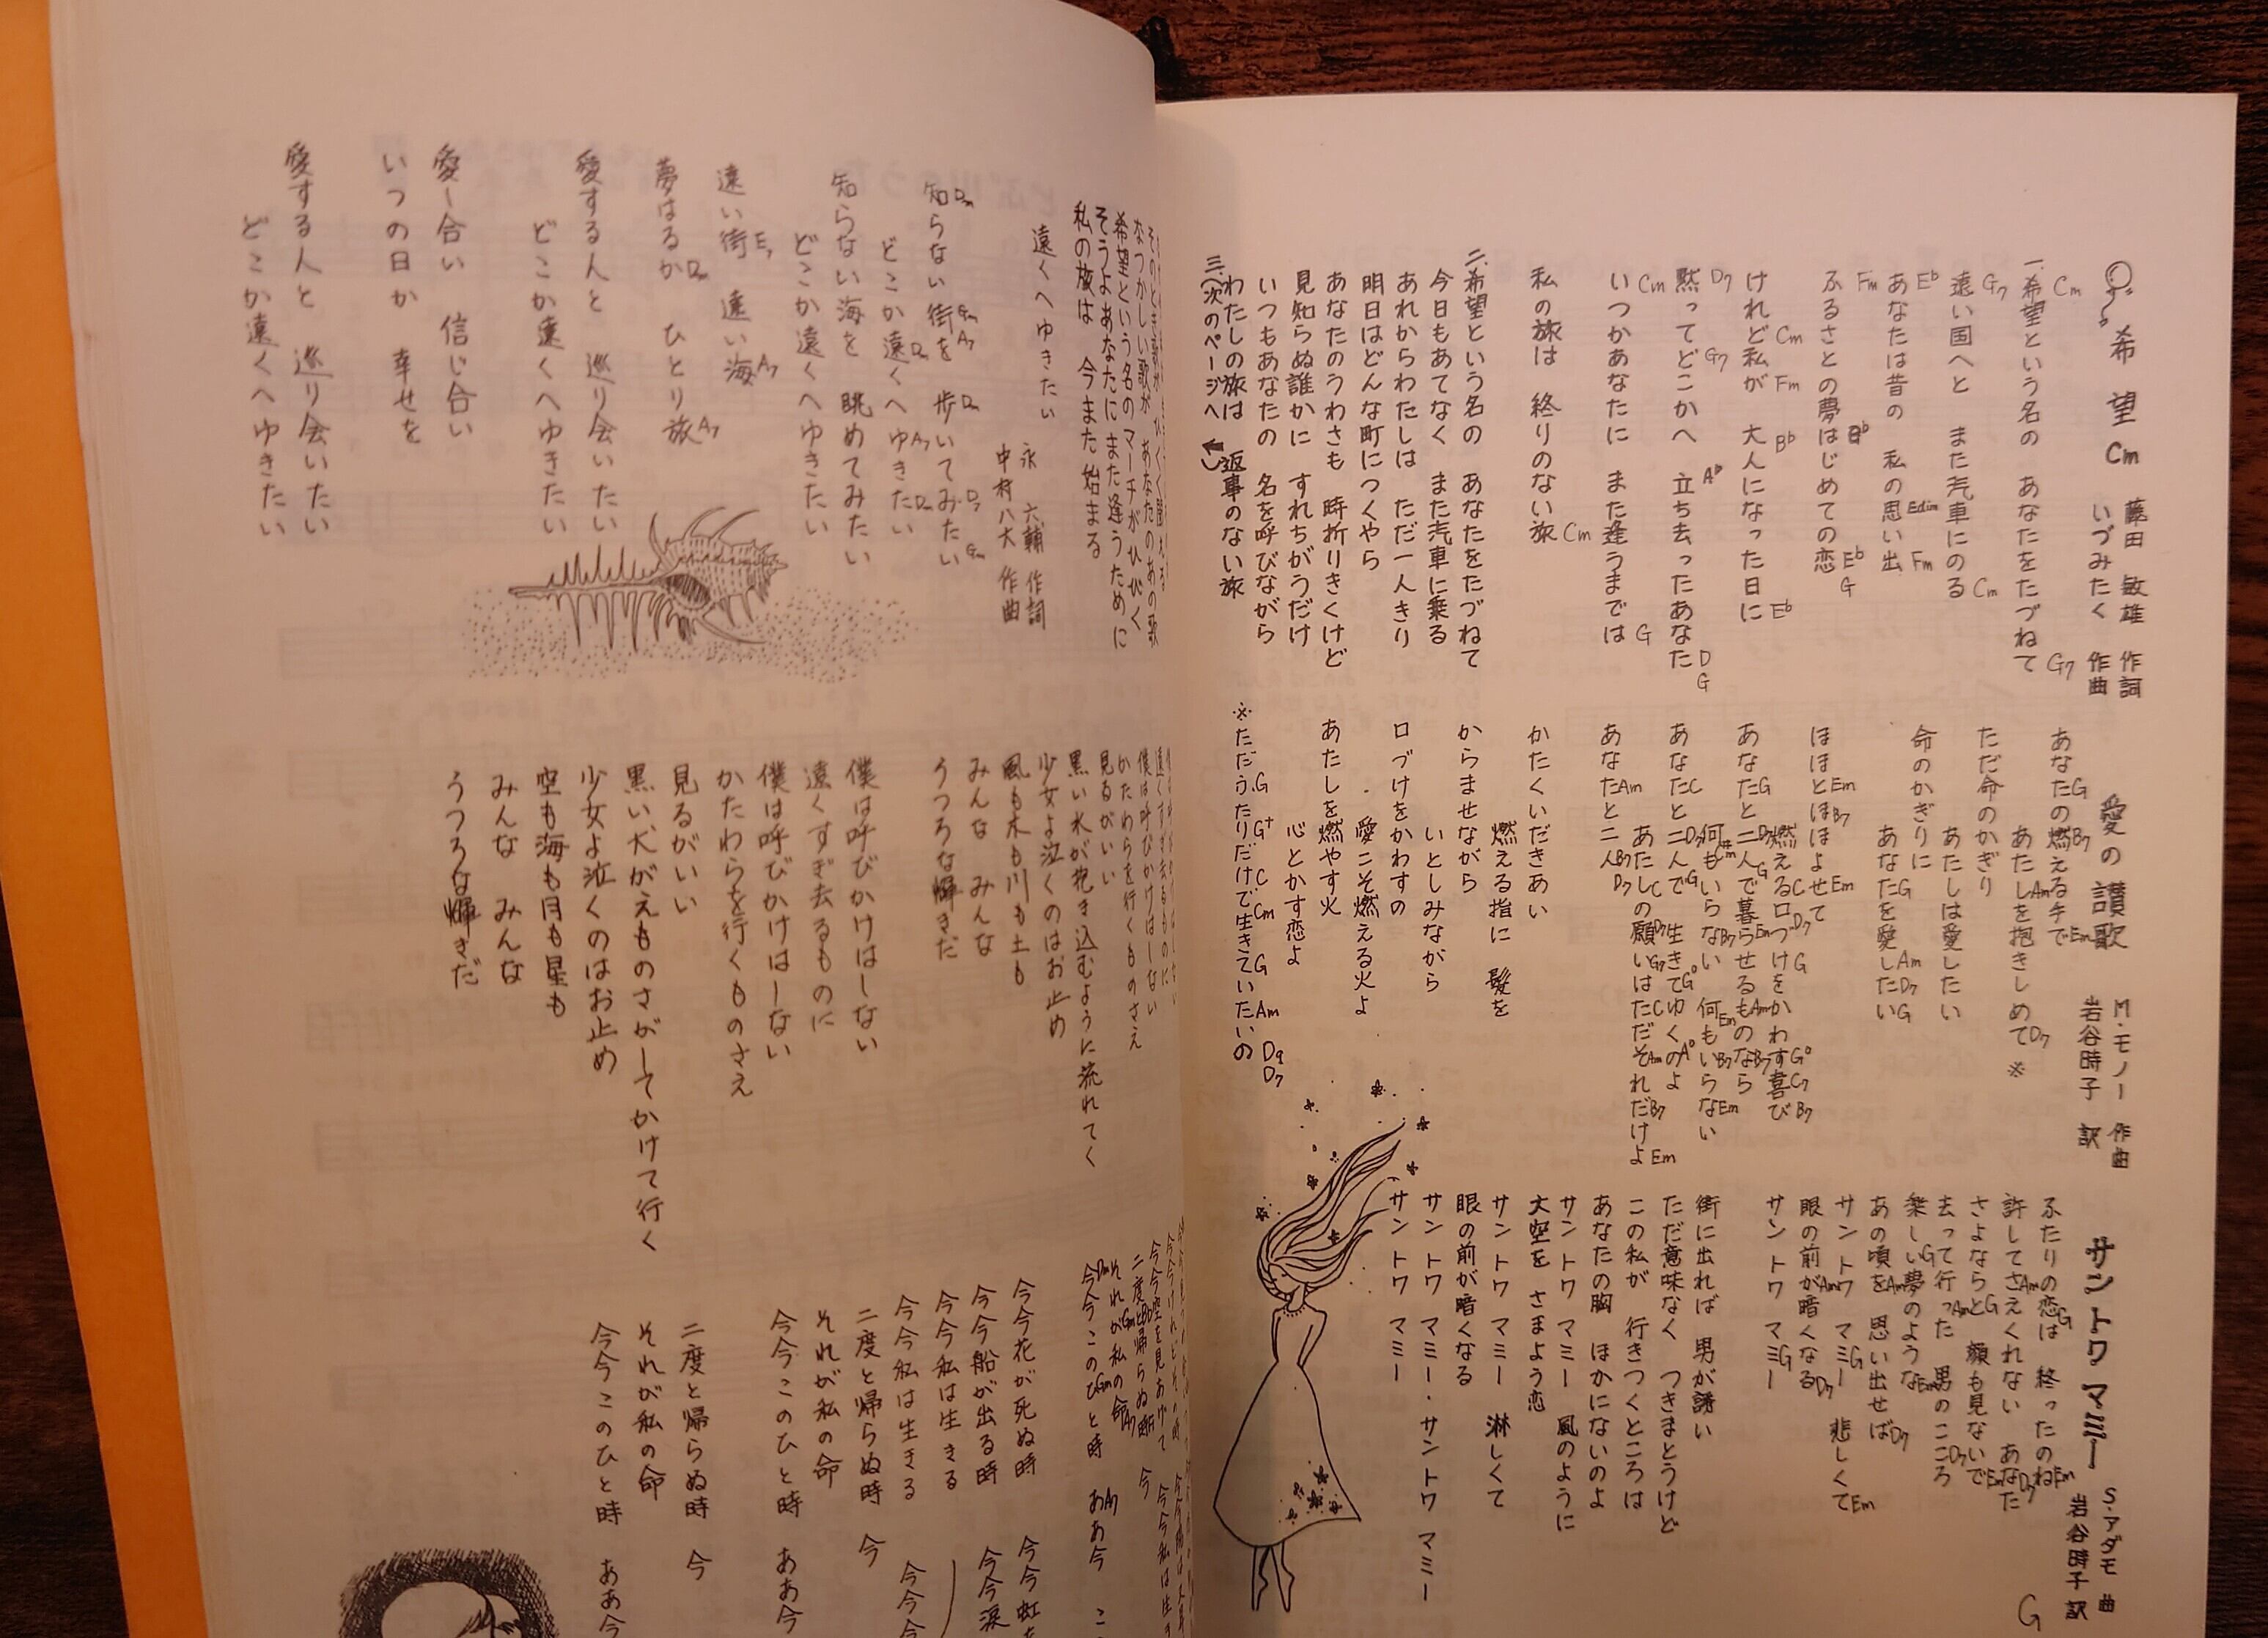 希望 Cm
藤田 敏雄 作詞
いづみたく 作曲
Cm G7
一.希望という名の あなたをたづねて
G7 Cm
遠い国へと また汽車にのる
Eb Edim Fm
あなたは昔の 私の思い出
Fm Bb Eb G
ふるさとの夢はじめての恋
Cm Fm Bb Eb
けれど私が 大人になった日に
D7 G7 Ab D G
黙ってどこかへ 立ち去ったあなた
Cm G
いつかあなたに また逢うまでは
Cm
私の旅は 終りのない旅
二.希望という名の あなたをたづねて
今日もあてなく また汽車に乗る
あれからわたしは ただ一人きり
明日はどんな町につくやら
あなたのうわさも 時折りきくけど
見知らぬ誰かに すれちがうだけ
いつもあなたの 名を呼びながら
わたしの旅は 返事のない旅
三.(次のページへ
愛の讃歌
M・モノー 作曲
岩谷時子 訳
G B7 Em
あなたの燃える手で
Am D7
あたしを抱きしめて ※
ただ命のかぎり
あたしは愛したい
命のかぎりに
G Am D7 G
あなたを愛したい
Em B7 Em
ほほとほほよせて
C D7 G G° C7 B7
燃える口づけをかわす喜び
G D7 G Em Am B7
あなたと二人で暮らせるものなら
B7 Em B7 Em
何もいらない 何もいらない
C D7 G G° A°
あなたと二人で 生きてゆくのよ
C D7 G7 C Am B7 Em
あたしの願いはただそれだけよ
Am B7 D7
あなたと二人
かたくいだきあい
燃える指に 髪を
からませながら
いとしみながら
口づけをかわすの
愛こそ燃える火よ
あたしを燃やす火
心とかす恋よ
G G+ C Cm G Am D9 D7
※ただふたりだけで生きていたいの
サン トワ マミー
S.アダモ 曲
岩谷時子 訳
G
G Em
ふたりの恋は 終ったのね
Am D7
許してさえくれない あなた
G Em
さよならと 顔も見ないで
Am D7
去って行った 男のこころ
G Em
楽しい夢のような
Am D7
あの頃を 思い出せば
G Em
サン トワ マミー 悲しくて
Am D7
眼の前が暗くなる
G
サン トワ マミー
街に出れば 男が誘い
ただ意味なく つきまとうけど
この私が 行きつくところは
あなたの胸 ほかにないのよ
サン トワ マミー 風のように
大空を さまよう恋
サン トワ マミー 淋しくて
眼の前が暗くなる
サン トワ マミー・サン トワ マミー
サン トワ マミー
なつかしい歌が あなたのあの歌
希望という名のマーチがひびく
そうよあなたにまた逢うために
私の旅は 今また始まる
遠くへゆきたい
永 六輔 作詞
中村八大 作曲
Dm Gm A7 Dm D7 Gm
知らない街を 歩いてみたい
Dm A7 Dm
どこか遠くへゆきたい
知らない海を 眺めてみたい
どこか遠くへゆきたい
E7 A7
遠い街 遠い海
Dm A7
夢はるか ひとり旅
愛する人と 巡り会いたい
どこか遠くへゆきたい
愛し合い 信じ合い
いつの日か 幸せを
愛する人と 巡り会いたい
どこか遠くへゆきたい
僕は呼びかけはしない
かたわらを行くものさえ
見るがいい
黒い水が抱き込むように流れてく
少女よ泣くのはお止め
風も木も川も土も
みんな みんな
うつろな輝きだ
僕は呼びかけはしない
遠くすぎ去るものに
僕は呼びかけはしない
かたわらを行くものさえ
見るがいい
黒い犬がえものさがしてかけて行く
少女よ泣くのはお止め
空も海も月も星も
みんな みんな
うつろな輝きだ
今今空を見あげて
二度と帰らぬ時 今
それが私の命
今今このひと時 ああ今
今今花が死ぬ時
今今船が出る時
今今私は生きる
今今私は生きる
二度と帰らぬ時 今
それが私の命
今今このひと時 ああ今
今今虹
今今涙
今今今
二度と帰らぬ時 今
それが私の命
今今このひと時 ああ今